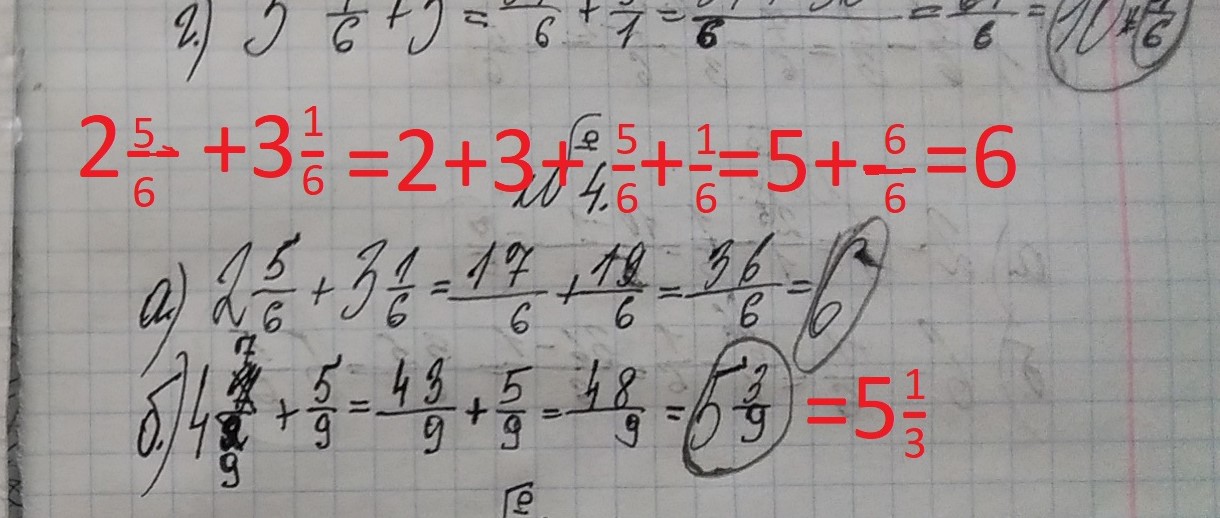 г.) 5 1/6 + 5 = /6 + 5/1 = /6 = /6 = 10 1/6
2 5/6 + 3 1/6 = 2 + 3 + 5/6 + 1/6 = 5 + 6/6 = 6
№ 4.
а.) 2 5/6 + 3 1/6 = 17/6 + 19/6 = 36/6 = 6
б.) 4 7/9 + 5/9 = 43/9 + 5/9 = 48/9 = 5 3/9 = 5 1/3